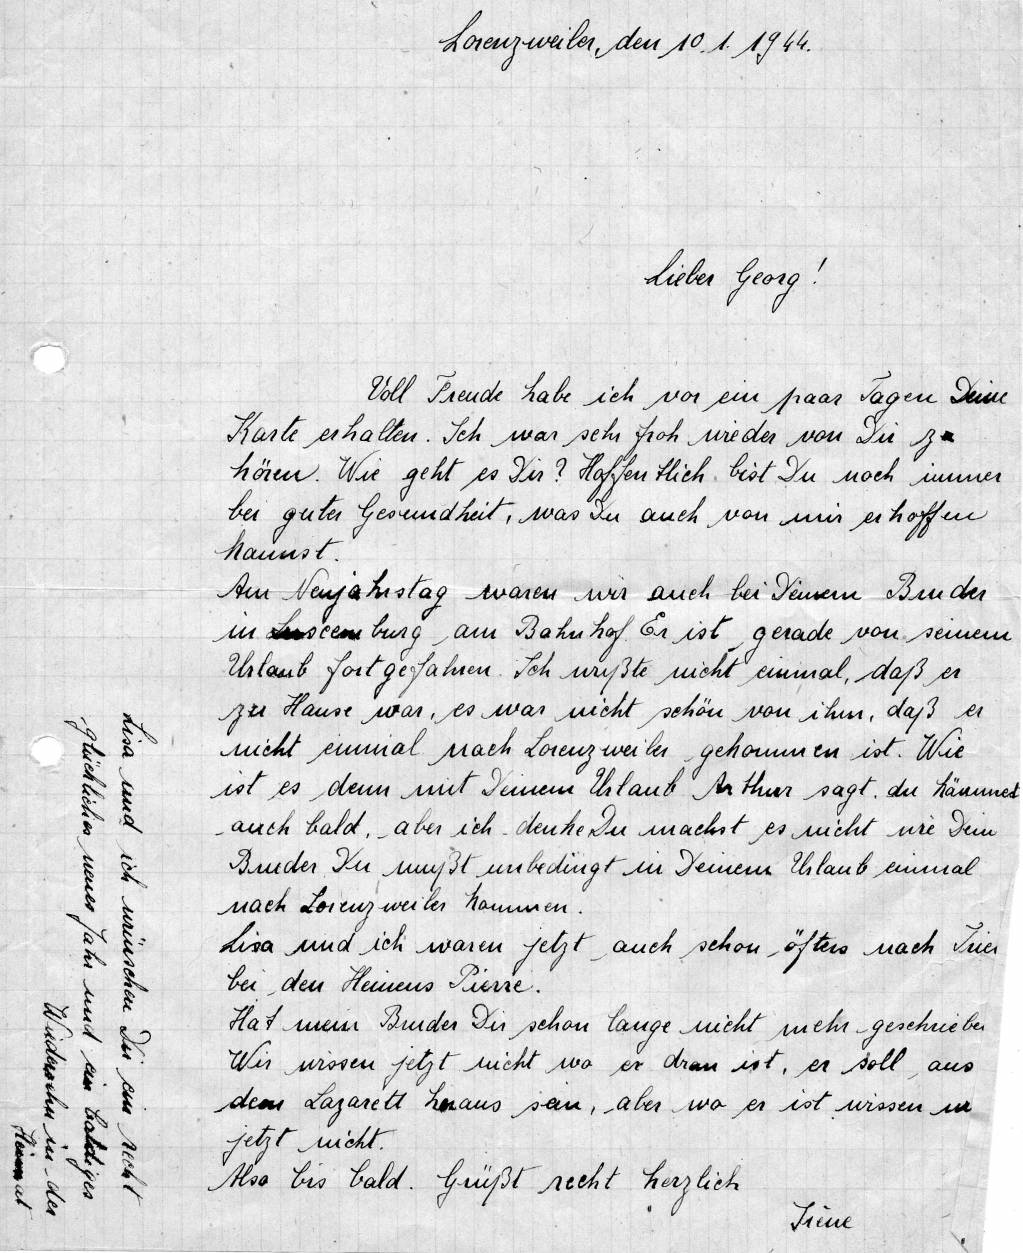 Lorenzweiler, den 10.1.1944.
Lieber Georg!
Voll Freude habe ich vor ein paar Tagen Deine
Karte erhalten. Ich war sehr froh wieder von Dir zu
hören. Wie geht es Dir? Hoffentlich bist Du noch immer
bei guter Gesundheit, was Du auch von mir erhoffen
kannst.
Am Neujahrstag waren wir auch bei Deinem Bruder
in Luxemburg am Bahnhof. Er ist gerade von seinem
Urlaub fortgefahren. Ich wußte nicht einmal, daß er
zu Hause war, es war nicht schön von ihm, daß er
nicht einmal nach Lorenzweiler gekommen ist. Wie
ist es denn mit Deinem Urlaub Arthur sagt. du kämmest
auch bald, aber ich denke Du machst es nicht wie Dein
Bruder Du mußt unbedingt in Deinem Urlaub einmal
nach Lorenzweiler kommen.
Lisa und ich waren jetzt auch schon öfters nach Trier
bei den Heinens Pierre.
Hat mein Bruder Dir schon lange nicht mehr geschrieben
Wir wissen jetzt nicht wo er dran ist, er soll aus
dem Lazarett heraus sein, aber wo er ist wissen wir
jetzt nicht.
Also bis bald. Grüßt recht herzlich
Irene
Lisa und ich wünschen Dir ein recht
glückliches neues Jahr und ein baldiges
Wiedersehn in der
Heimat